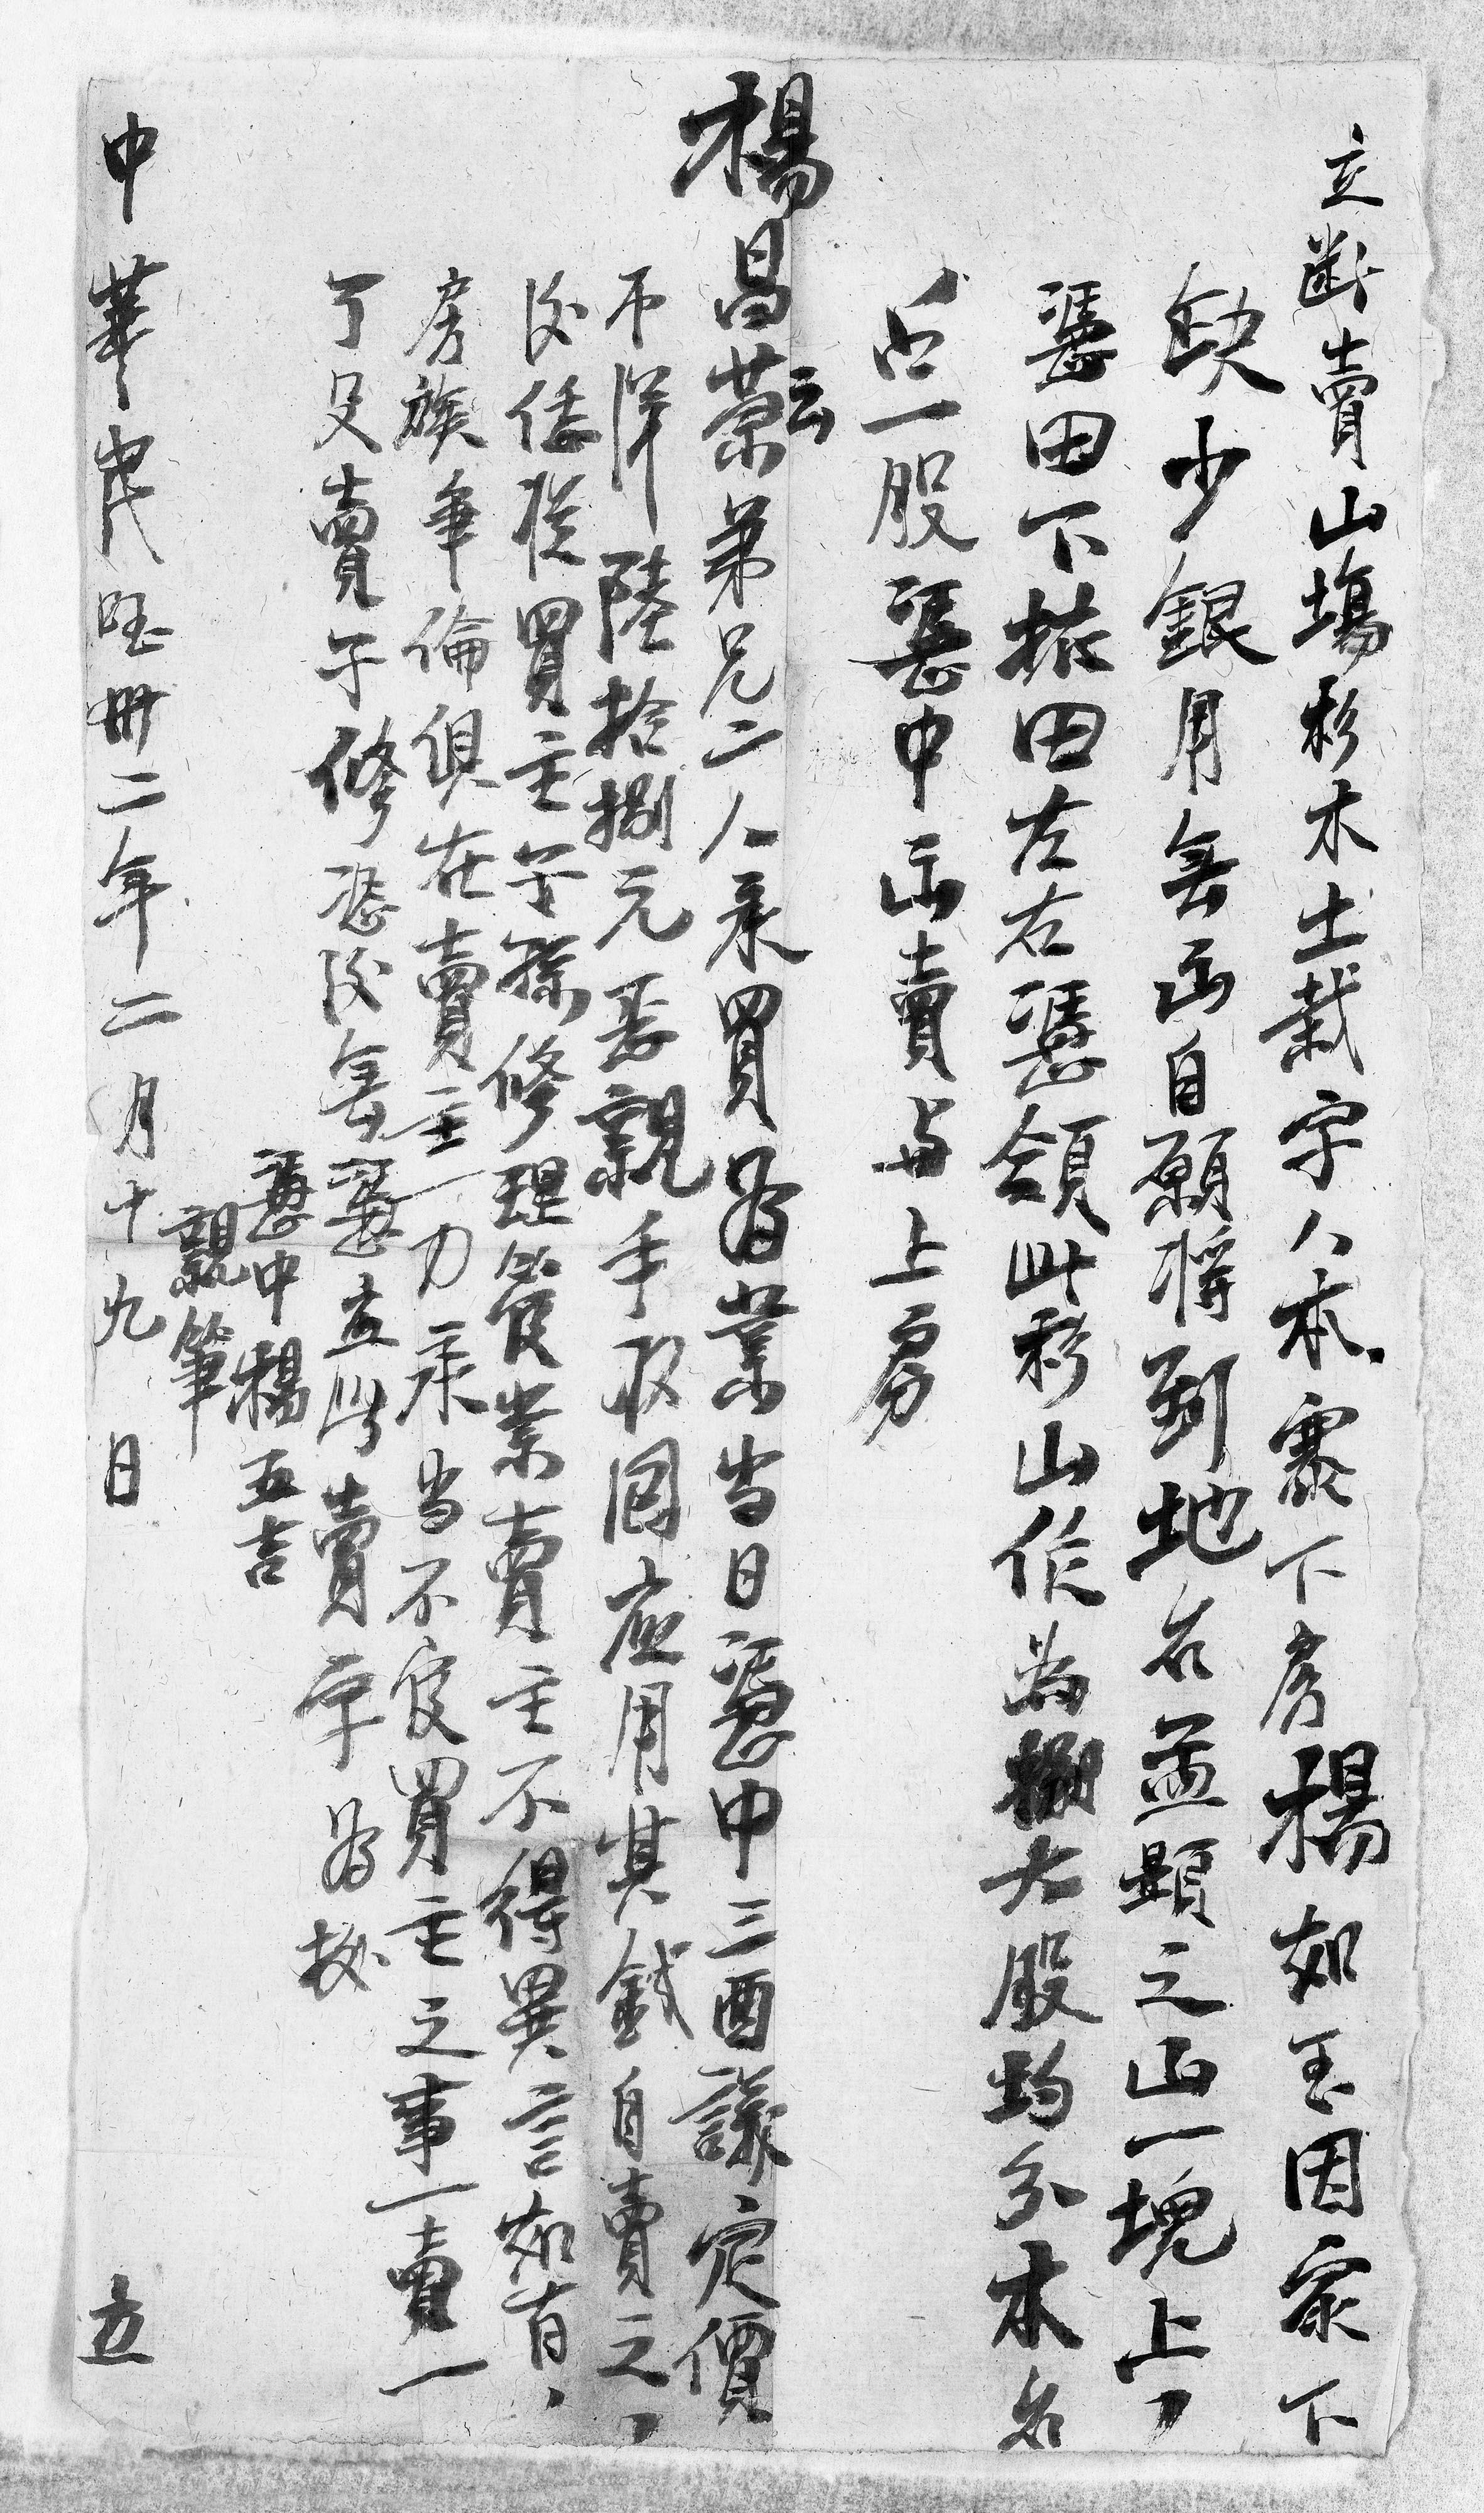 立断賣山塲杉木土栽字人本寨下房楊如玉因家下
缺少銀用無出自願將到地名並頭之山一塊上
憑田下抵田左右憑領此杉山作為捌大股均分本名
占一股憑中出賣与上房
楊昌荣云弟兄二人承買為業当日憑中三面議定價
币洋陸拾捌元正親手收回应用其錢自賣之
後任從買主子孫修理管業賣主不得異言如有
房族爭倫俱在賣主一力承当不管買主之事一賣一
了父賣子修恐後無憑立此賣字為据
憑中楊五吉
親筆
中華民国卅二年二月十九日立